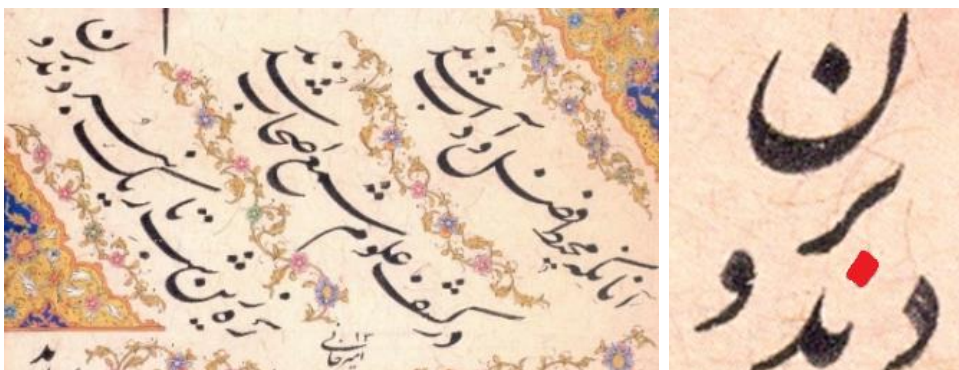 آنانکه محیط فضل و آداب شدند
در کشف علوم شمع اصحاب شدند
ره زین شب تاریک نبردند برون
امیرخانی ۱۳